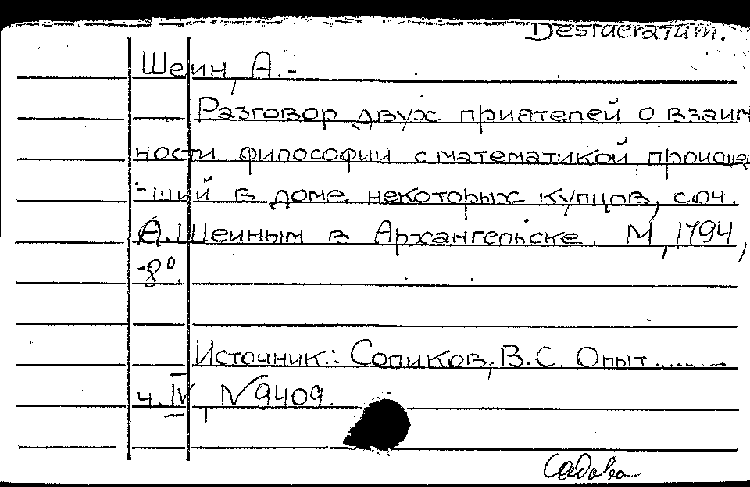 Desiderata.
Шеин, А.-
Разговор двух приятелей о взаим
ности философии с математикой происшед
-ший в доме некоторых купцов, соч.
А. Шеиным в Архангельске. М, 1794,
-8°.
Источник: Сопиков, В.С. Опыт.......
ч. IV, N 9409.